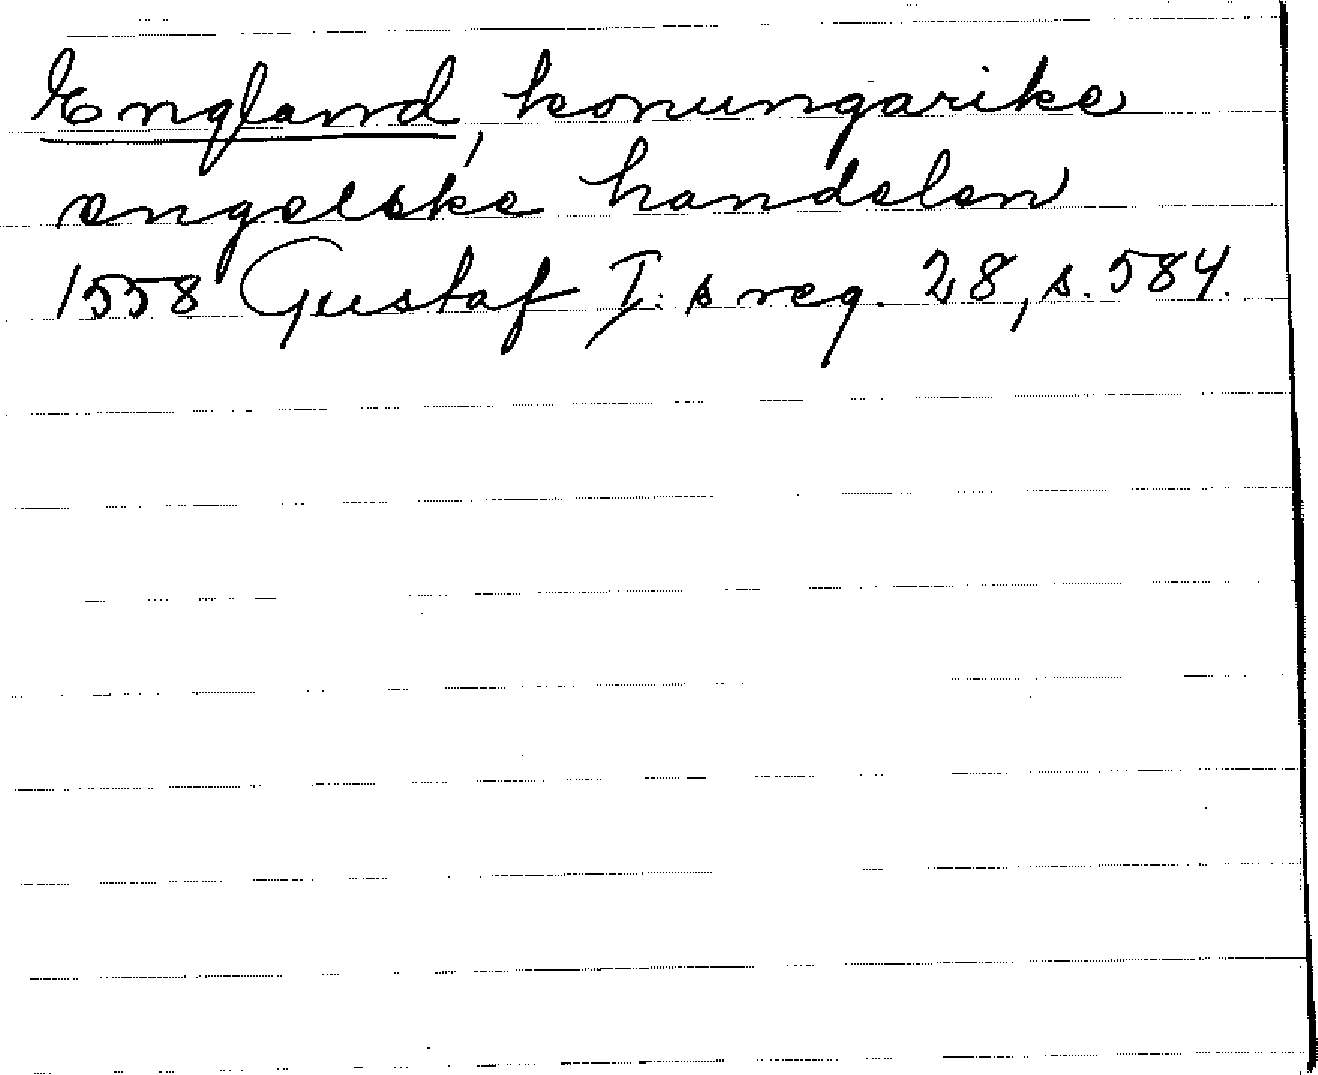 England, konungarike
engelske handelen
1558 Gustaf I:s reg. 28, s. 584.